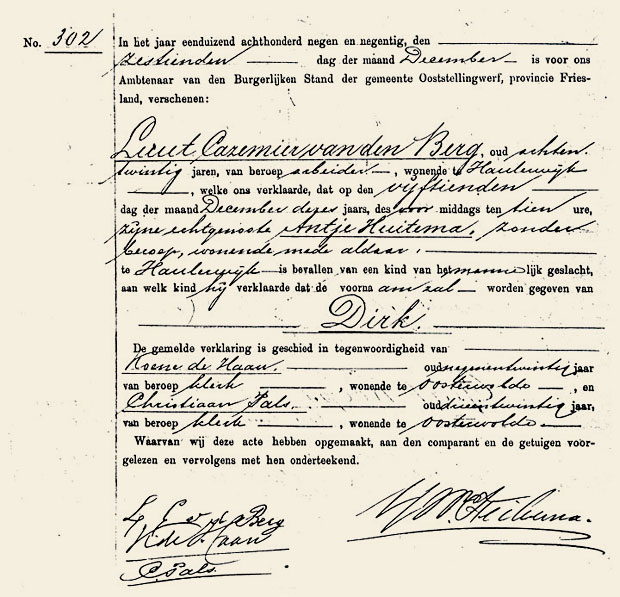 No. 302 In het jaar eenduizend achthonderd negen en negentig, den
zestienden dag der maand December is voor ons
Ambtenaar van den Burgerlijken Stand der gemeente Ooststellingwerf, provincie Fries-
land, verschenen:
Lieut Cazemier van den Berg, oud achten-
twintig jaren, van beroep arbeider, wonende te Haulerwijk
, welke ons verklaarde, dat op den vijftienden
dag der maand December dezes jaars, des voor middags ten tien ure,
zijne echtgenoote Antje Huitema, zonder
beroep, wonende mede aldaar,
te Haulerwijk is bevallen van een kind van het mannelijk geslacht,
aan welk kind hij verklaarde dat de voorna am zal worden gegeven van
Dirk.
De gemelde verklaring is geschied in tegenwoordigheid van
Koene de Haan. oud negenentwintig jaar
van beroep klerk, wonende te Oosterwolde, en
Christiaan Pals. oud drieentwintig jaar,
van beroep klerk, wonende te Oosterwolde.
Waarvan wij deze acte hebben opgemaakt, aan den comparant en de getuigen voor-
gelezen en vervolgens met hen onderteekend.
L. C. v. d. Berg
K. de Haan
C. Pals.